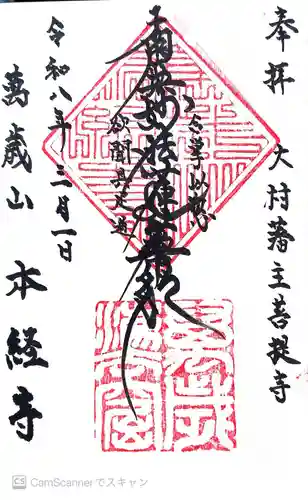 奉拝 大村藩主菩提寺
南無妙法蓮華経
令和八年三月一日
萬歳山 本経寺
CS CamScannerでスキャン